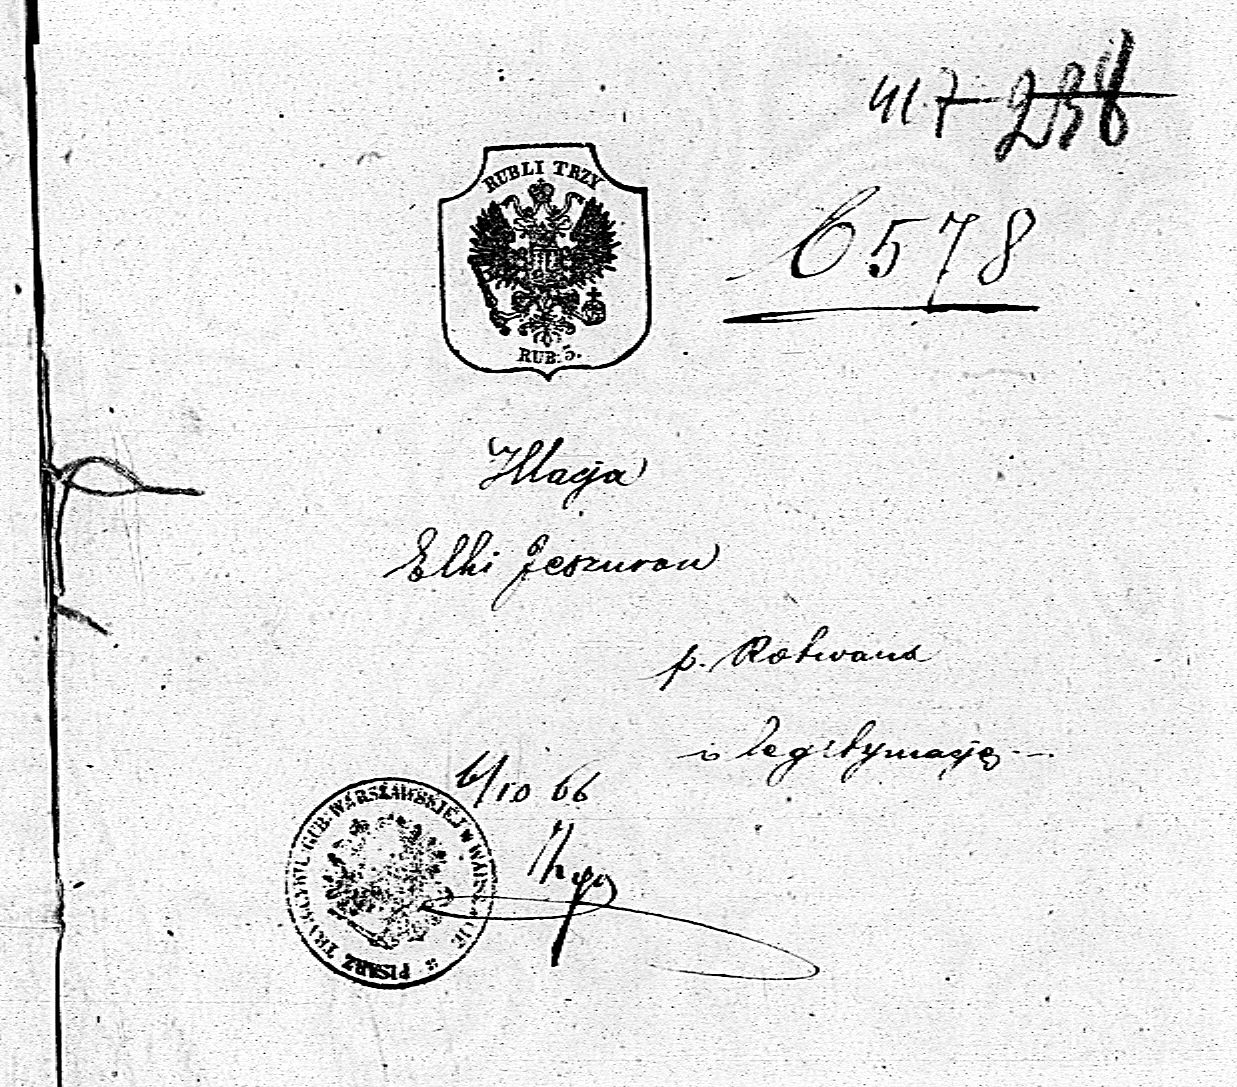 417 238
6578
RUBLI TRZY
RUB. 5.
Illacya
Elki Jeszuron
p. Rotwand
o legitymacyę
6/10 66
PISARZ TRYB. CYWIL. GUB. WARSZAWSKIÉJ W WARSZAWIE